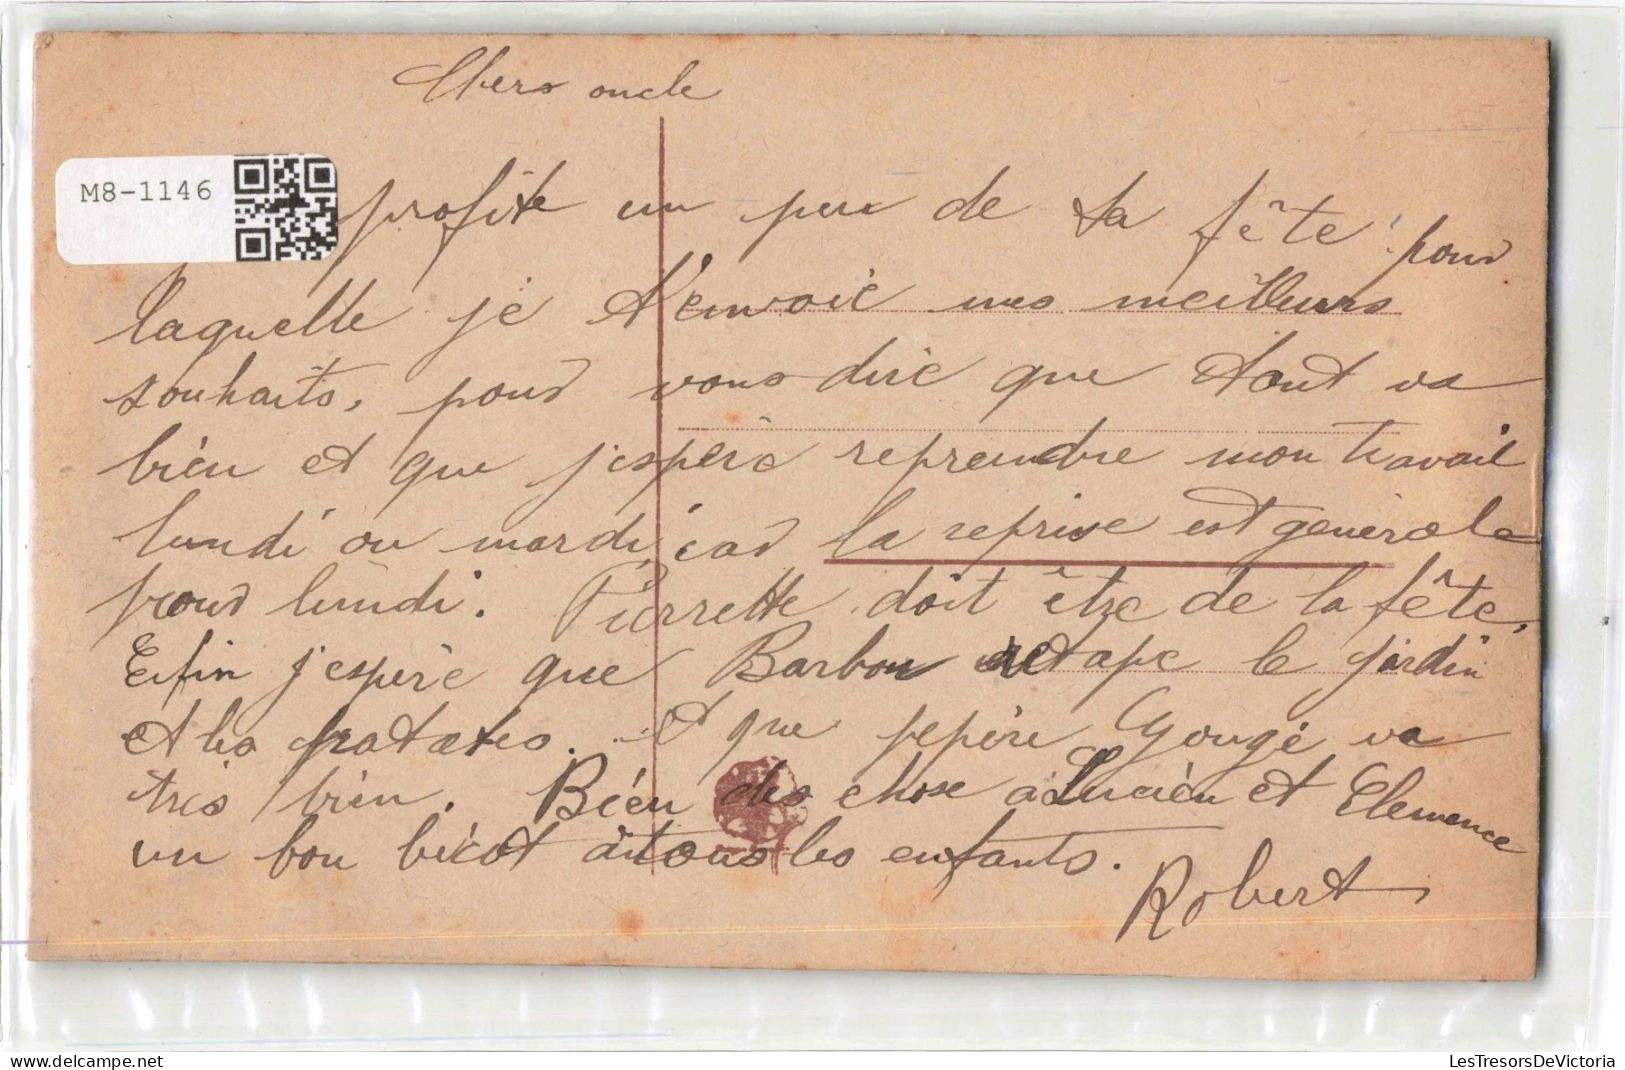 Chers oncle
M8-1146
profite un peu de ta fête pour
laquelle je t'envoie mes meilleurs
souhaits, pour vous dire que tout va
bien et que j'espère reprendre mon travail
lundi ou mardi, car la reprise est générale
pour lundi. Pierrette doit être de la fête,
Enfin j'espère que Barbou retape le jardin
et les patates. et que pepère Gougé va
très bien. Bien des chose à Lucien et Clemence
un bon bécot à tous les enfants.
Robert
LesTresorsDeVictoria